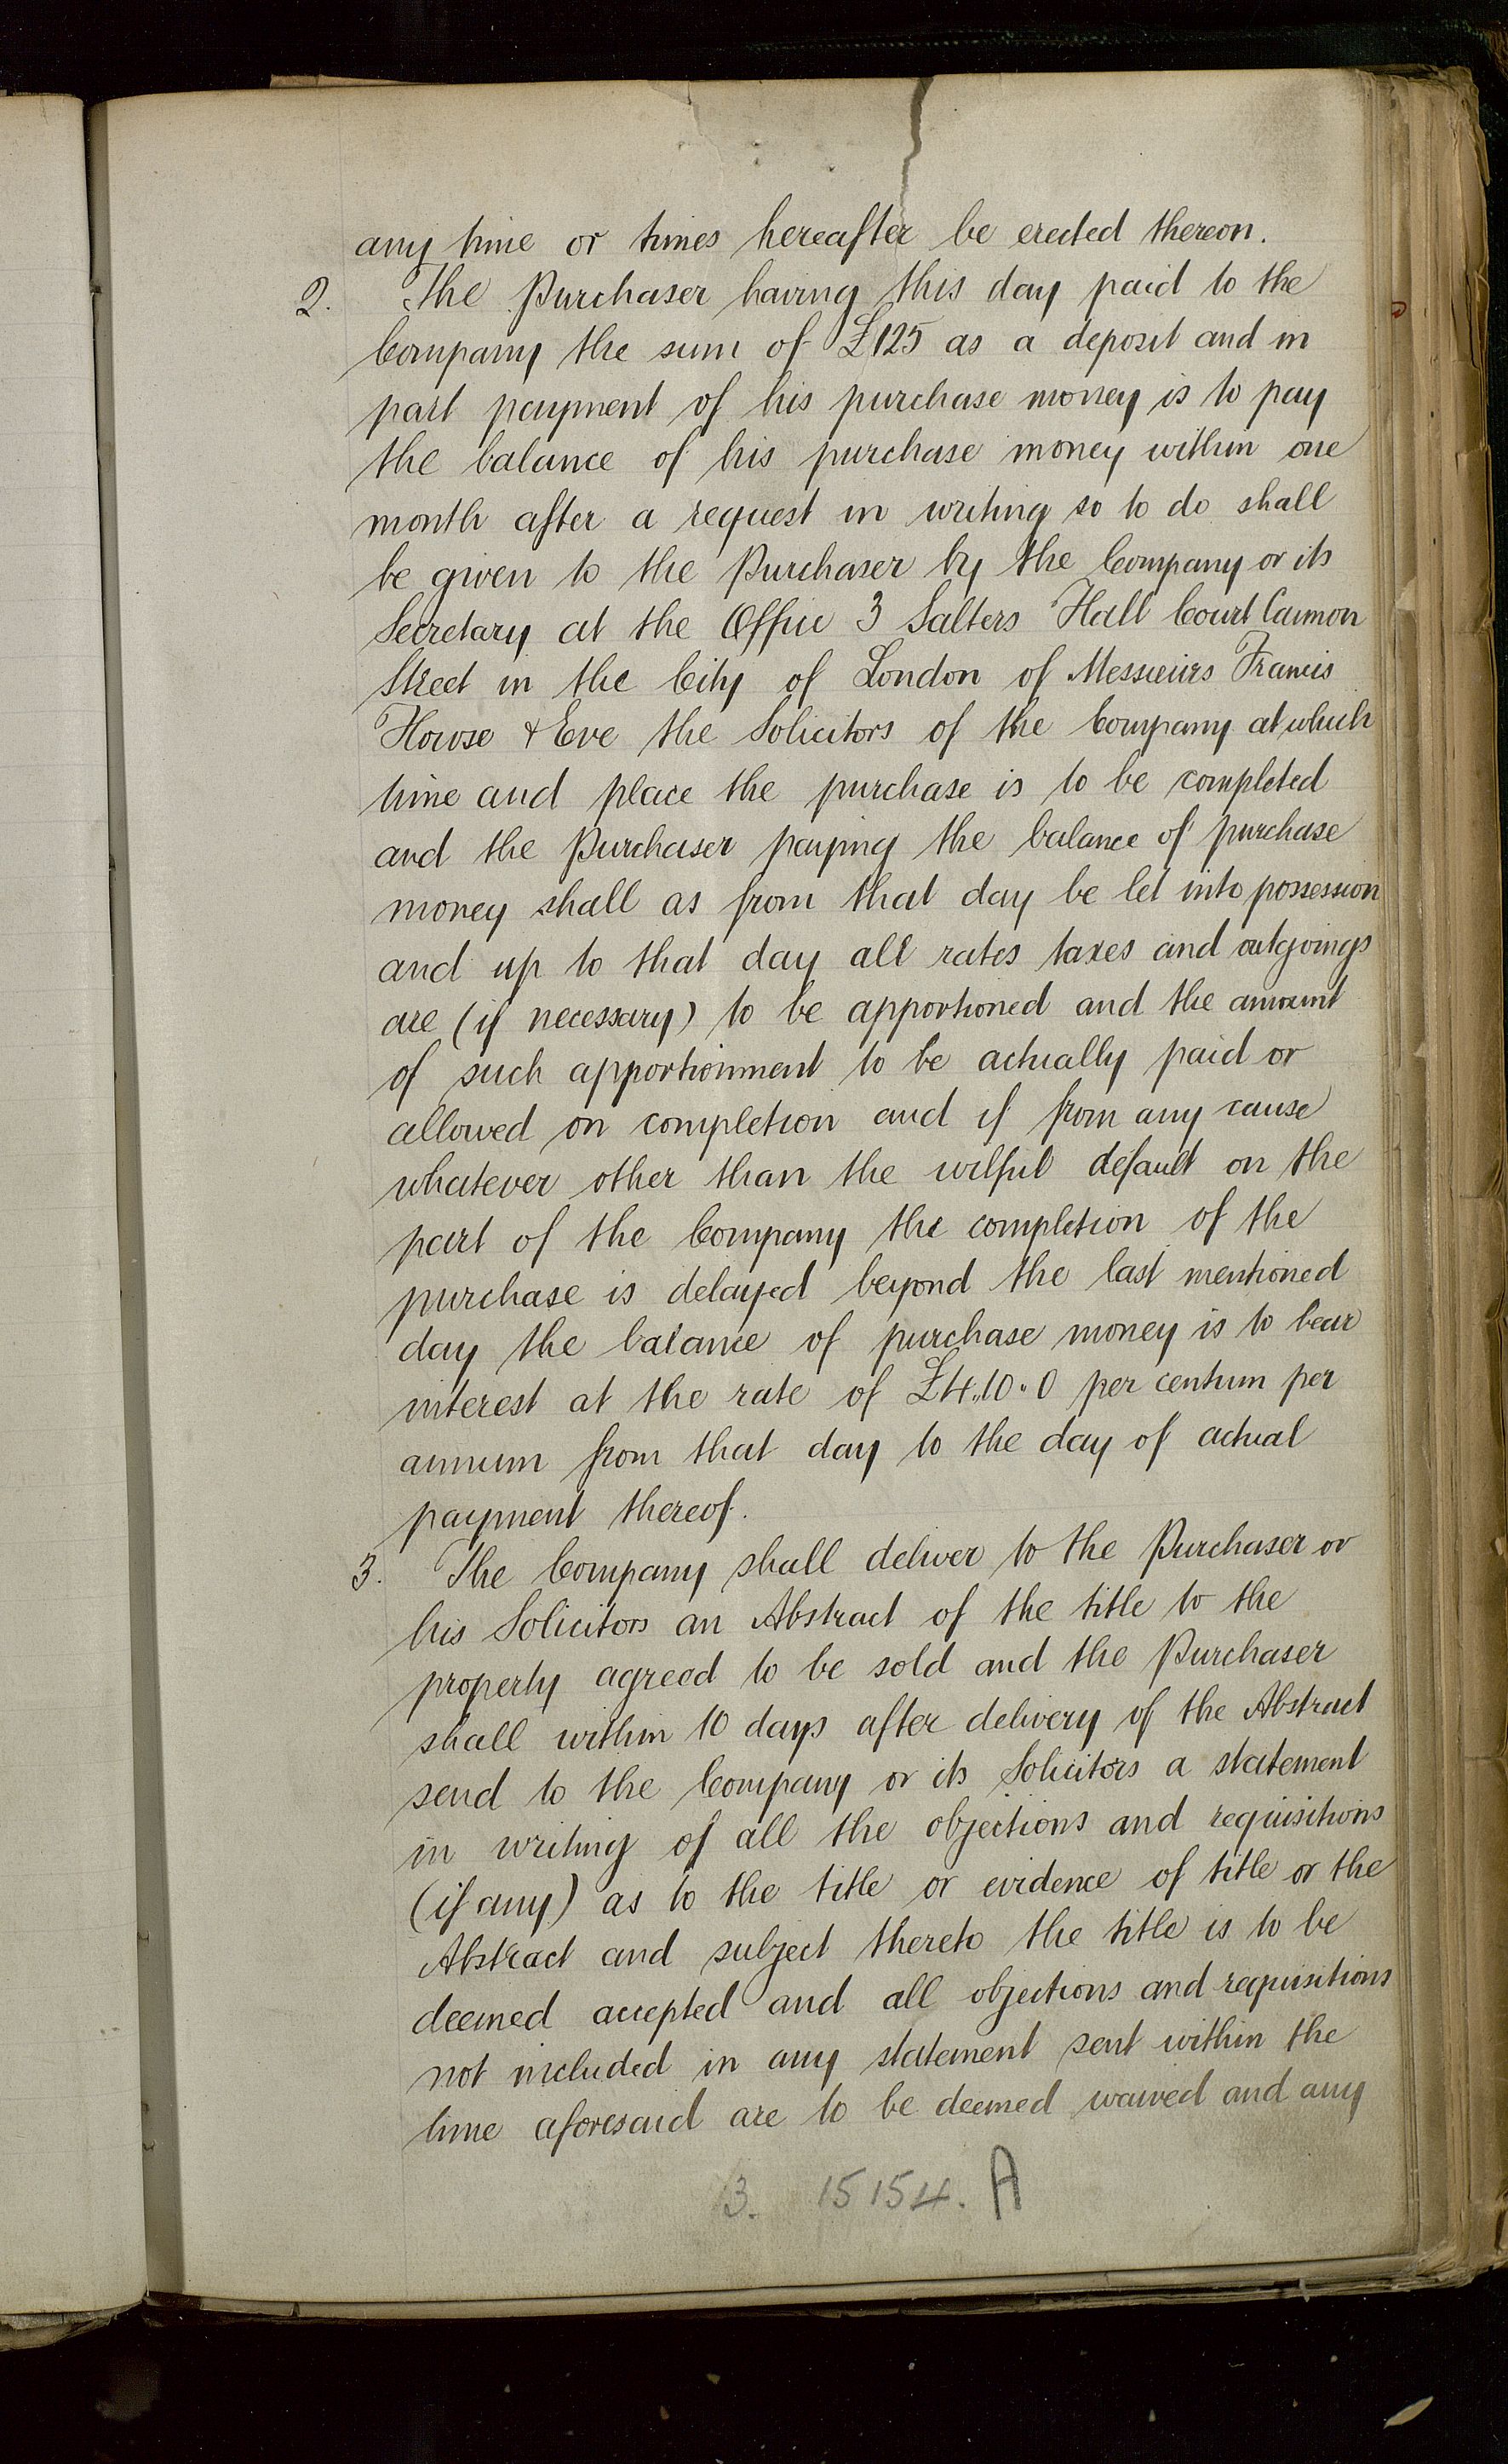 any time or times hereafter be erected thereon.
2. The Purchaser having this day paid to the
Company the sum of £125 as a deposit and in
part payment of his purchase money is to pay
the balance of his purchase money within one
month after a request in writing so to do shall
be given to the Purchaser by the Company or its
Secretary at the Office 3 Salters Hall Court Cannon
Street in the City of London of Messieurs Francis
Howse & Eve the Solicitors of the Company at which
time and place the purchase is to be completed
and the Purchaser paying the balance of purchase
money shall as from that day be let into possession
and up to that day all rates taxes and outgoings
are (if necessary) to be apportioned and the amount
of such apportionment to be actually paid or
allowed on completion and if from any cause
whatever other than the wilful default on the
part of the Company the completion of the
purchase is delayed beyond the last mentioned
day the balance of purchase money is to bear
interest at the rate of £4..10..0 per centum per
annum from that day to the day of actual
payment thereof.
3. The Company shall deliver to the Purchaser or
his Solicitors an Abstract of the title to the
property agreed to be sold and the Purchaser
shall within 10 days after delivery of the Abstract
send to the Company or its Solicitors a statement
in writing of all the objections and requisitions
(if any) as to the title or evidence of title or the
Abstract and subject thereto the title is to be
deemed accepted and all objections and requisitions
not included in any statement sent within the
time aforesaid are to be deemed waived and any
3. 15154. A